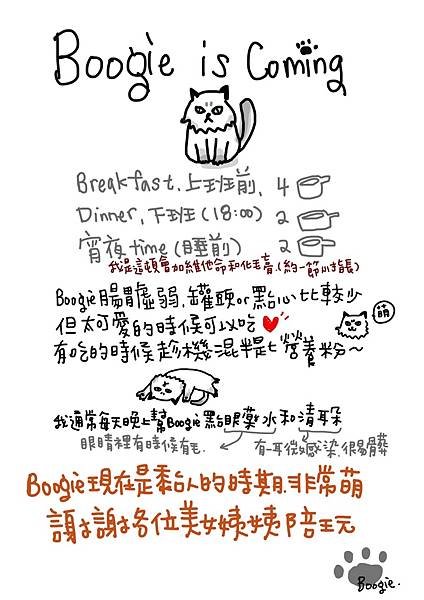 Boogie is Coming
Breakfast.上班前. 4
Dinner.下班(18:00) 2
宵夜 time (睡前) 2
我是這頓會加維他命和化毛膏.(約一節小指長)
Boogie腸胃虛弱.罐頭or點心比較少
但太可愛的時候可以吃
萌
有吃的時候趁機混半匙營養粉~
我通常每天晚上幫Boogie點眼藥水和清耳朵
眼睛裡有時候有毛.
有一耳微感染.很易髒
Boogie現在是黏人的時期.非常萌
謝謝各位美女姨姨陪玩
Boogie.